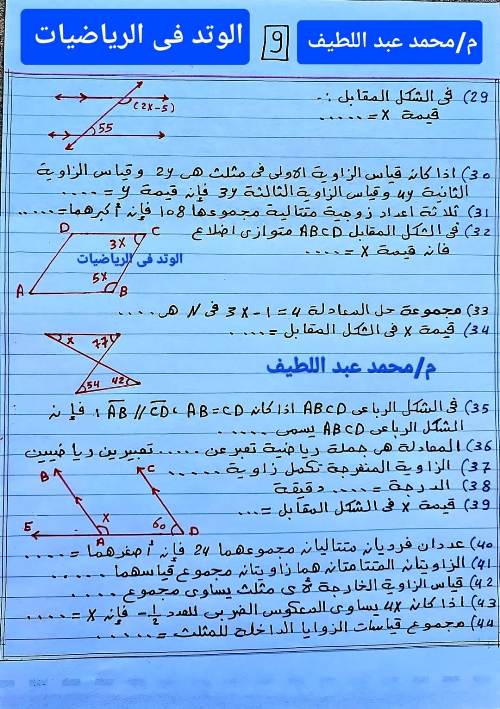 م/محمد عبد اللطيف
9
الوتد فى الرياضيات
29) فى الشكل المقابل :-
قيمة x = .....
(2x-5)
55
30) اذا كان قياس الزاوية الاولى فى مثلث هى 2y وقياس الزاوية
الثانية 4y وقياس الزاوية الثالثة 3y فإن قيمة y = ....
31) ثلاثة اعداد زوجية متتالية مجموعها 108 فإن أكبرهما = .....
32) فى الشكل المقابل ABCD متوازى اضلاع
فان قيمة x = ....
D C
3x
الوتد فى الرياضيات
5x
A B
33) مجموعة حل المعادلة 3x - 1 = 4 فى N هى ....
34) قيمة x فى الشكل المقابل = ....
x 77
54 42
م/محمد عبد اللطيف
35) فى الشكل الرباعى ABCD اذا كان AB = CD ، AB // CD فإن
الشكل الرباعى ABCD يسمى .....
36) المعادلة هى جملة رياضية تعبر عن ..... تعبيرين رياضيين
37) الزاوية المنفرجة تكمل زاوية .....
38) الدرجة = .... دقيقة
39) قيمة x فى الشكل المقابل = ...
B C
x 60
E A D
40) عددان فرديان متتاليان مجموعهما 24 فإن أصغرهما = ....
41) الزاويتان المتتامتان هما زاويتان مجموع قياسهما .....
42) قياس الزاوية الخارجة لأى مثلث يساوى مجموع .....
43) اذا كان 4x يساوى المعكوس الضربى للعدد -1/2 فإن x = ....
44) مجموع قياسات الزوايا الداخلة للمثلث = .....